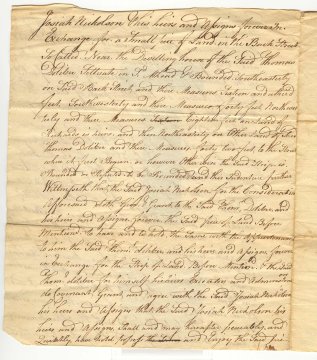 Josiah Nickolson & his heirs and assigns forever In
Exchange for a Small piece of Land in the Back Street
So Called Near the Dwelling house of the Said Thomas
Doliber Situate in &c. & Bounded Southeasterly
on Said Back Street and there Measures Sixteen and a half
feet, Southwesterly and there Measures forty feet Northwes
terly and there Measures Eighteen feet on Land of
heirs and then Northeasterly on Other Land of Said
Thomas Dolibor and there Measures forty two feet to the Place
where it first Begun or however Otherwise the Said Strip is
Bounded or Reputed to be Bounded and this Indenture further
Witnesseth that the Said Josiah Nickolson for the Consideration
aforesaid doth Give & Grant to the Said Thomas Dolibor and
his heirs and assigns forever the Said piece of Land Before
Mentioned To have and to hold the Same with the appurtenances
to him the Said Thos Dolibor and his heirs and assigns forever
in Exchange for the Strip of Land Before Mentioned & the Said
Thomas Dolibor for himself his heirs Executors and Administrators
do Covenant, Grant, and agree with the Said Josiah Nickolson
his heirs and assigns that the Said Josiah Nickolson his
heirs and assigns, Shall and may hereafter peaceably, and
Quietly have hold and Enjoy the Said first